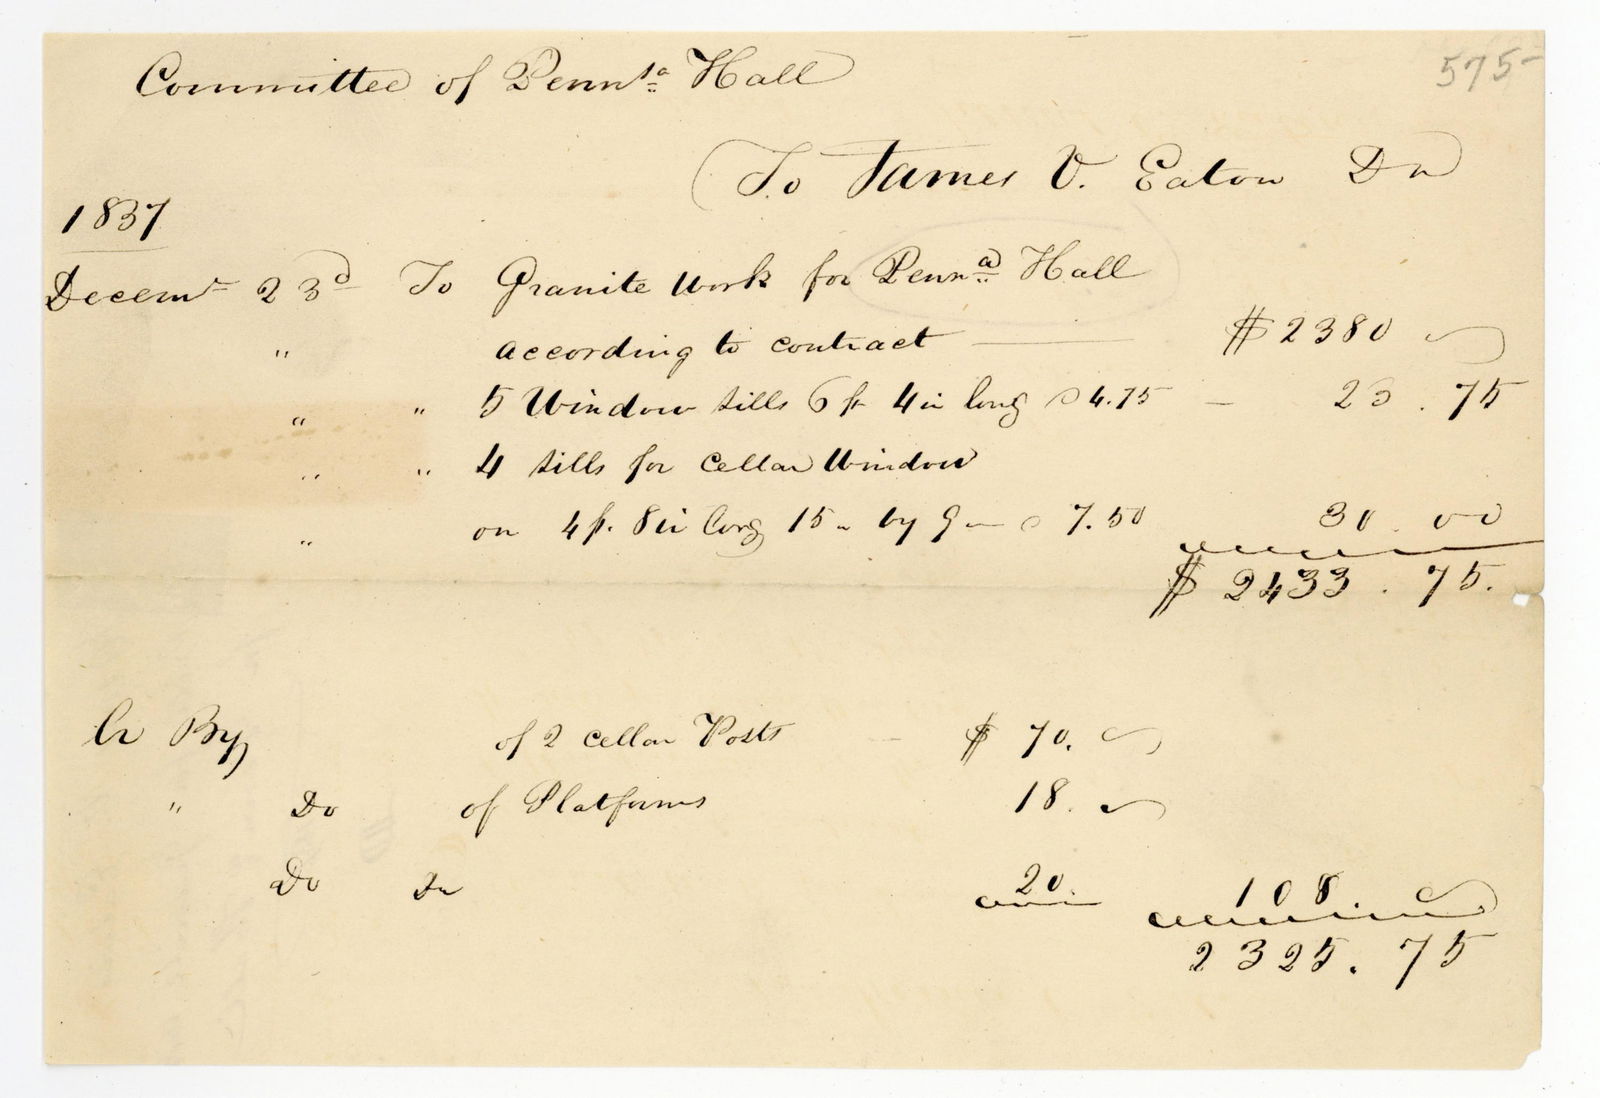 575-
Committee of Penn1a Hall
To James V. Eaton Dr
1837
Decemr 23d To Granite work for Penna Hall
" according to contract $2380
" " 5 Window sills 6 ft 4 in long @ 4.75 - 23.75
" " 4 sills for Cellar Window
" on 4 ft. 8 in long 15 " by 9 " @ 7.50 30.00
$ 2433.75.
Cr By of 2 cellar Posts $ 70.
" Do of Platforms 18.
Do Do 20. 108.
2325.75